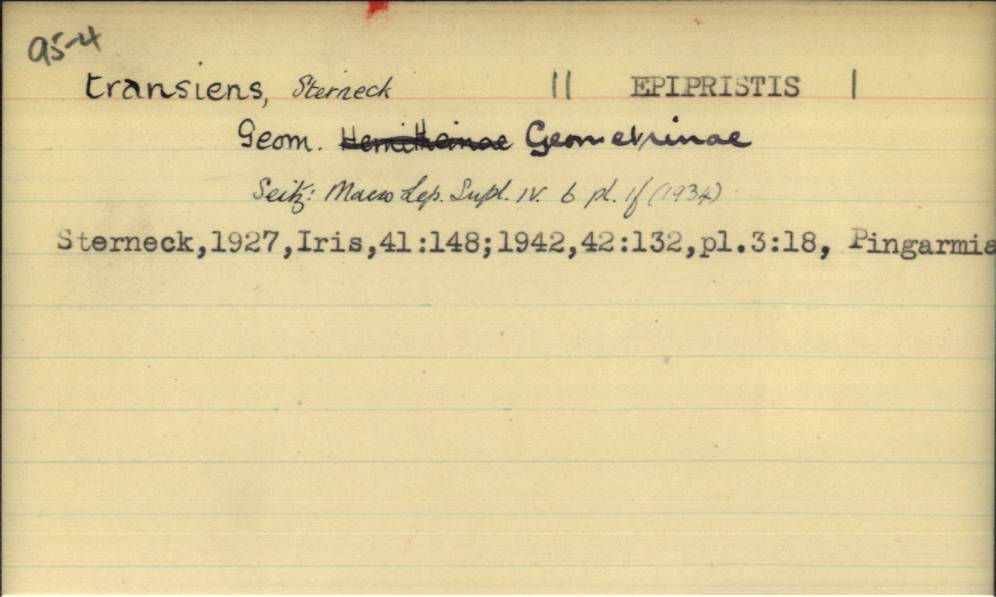 95-4
transiens, Sterneck || EPIPRISTIS |
Geom. Hemitheinae Geometrinae
Seitz: Macro Lep. Supl. IV. 6 pl. 1f (1934)
Sterneck,1927,Iris,41:148;1942,42:132,pl.3:18, Pingarmia